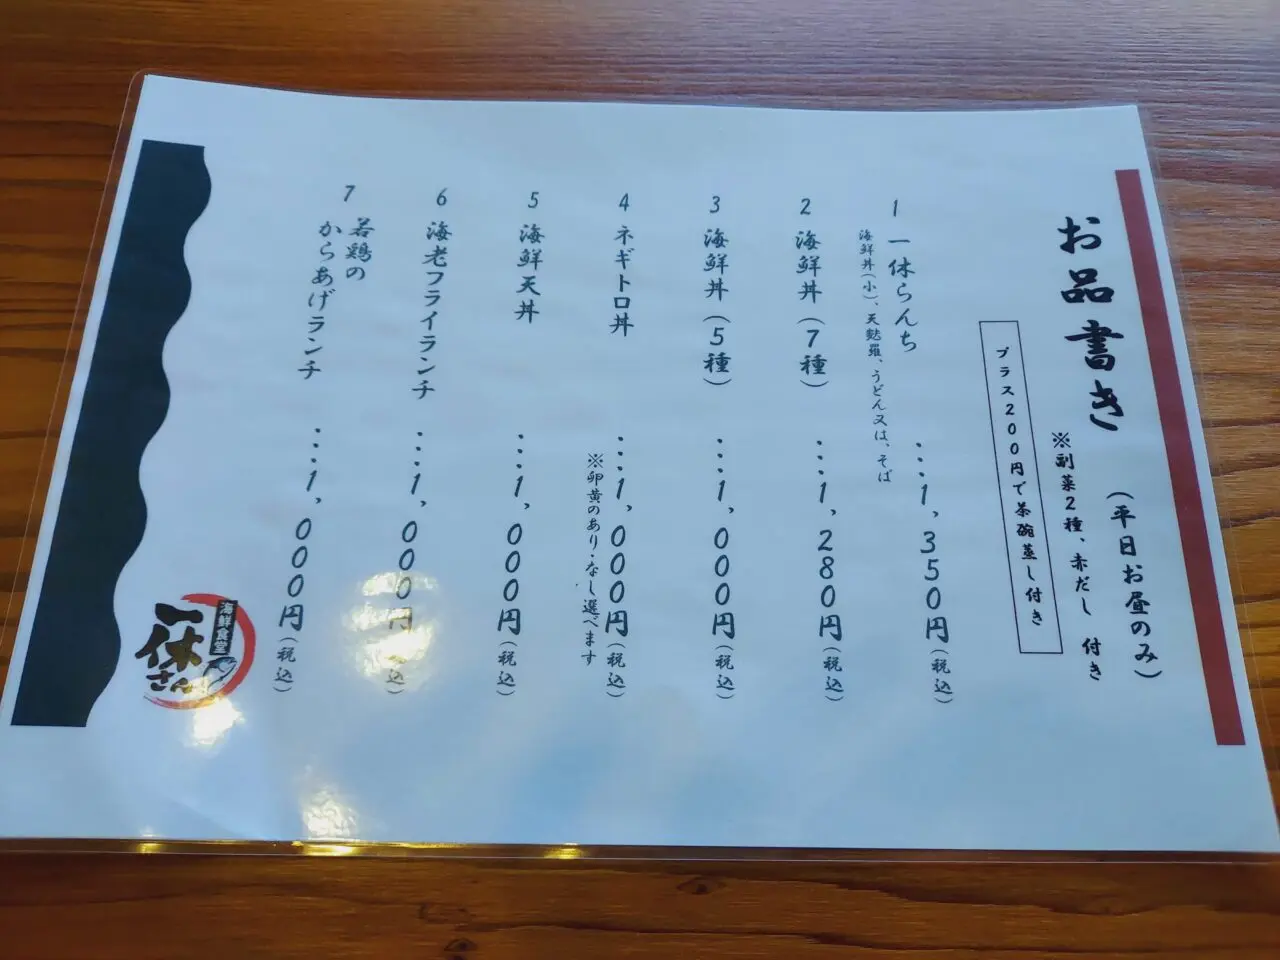 お品書き
(平日お昼のみ)
※副菜2種、赤だし 付き
プラス200円で茶碗蒸し付き
1 一休らんち …1,350円(税込)
海鮮丼(小)、天麩羅、うどん又は、そば
2 海鮮丼(7種) …1,280円(税込)
3 海鮮丼(5種) …1,000円(税込)
4 ネギトロ丼 …1,000円(税込)
※卵黄のあり・なし選べます
5 海鮮天丼 …1,000円(税込)
6 海老フライランチ …1,000円(税込)
7 若鶏の
からあげランチ …1,000円(税込)
海鮮食堂
一休さん